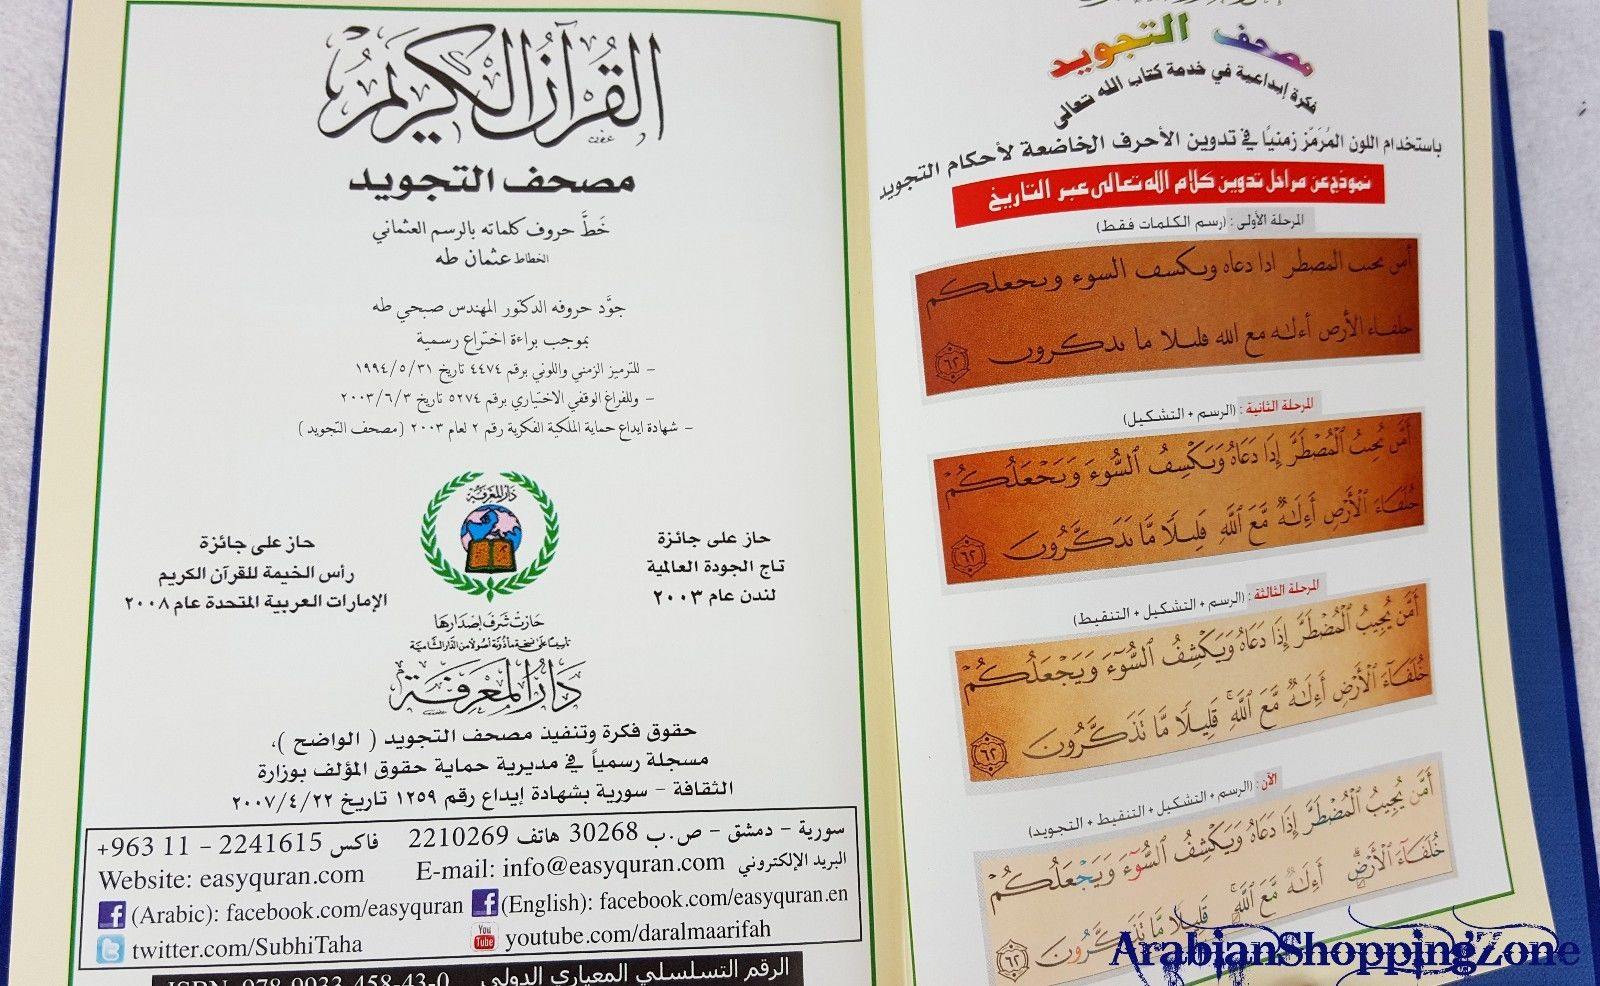 القرآن الكريم
مصحف التجويد
خَطَّ حروف كلماته بالرسم العثماني
الخطاط عثمان طه
جوَّد حروفه الدكتور المهندس صبحي طه
بموجب براءة اختراع رسمية
- للترميز الزمني واللوني برقم ٤٤٧٤ تاريخ ١٩٩٤/٥/٣١
- وللفراغ الوقفي الاختياري برقم ٥٢٧٤ تاريخ ٢٠٠٣/٦/٣
- شهادة إيداع حماية الملكية الفكرية رقم ٢ لعام ٢٠٠٣ (مصحف التجويد)
دار المعرفة
حاز على جائزة
تاج الجودة العالمية
لندن عام ٢٠٠٣
حاز على جائزة
رأس الخيمة للقرآن الكريم
الإمارات العربية المتحدة عام ٢٠٠٨
حازت شرف إصدارها
تأسيساً على نسخة مأذونة أصولاً من الدار الشامية
دار المعرفة
حقوق فكرة وتنفيذ مصحف التجويد ( الواضح )،
مسجلة رسمياً في مديرية حماية حقوق المؤلف بوزارة
الثقافة - سورية بشهادة إيداع رقم ١٢٥٩ تاريخ ٢٠٠٧/٤/٢٢
سورية - دمشق - ص.ب 30268 هاتف 2210269 فاكس 2241615 - 11 963+
البريد الإلكتروني E-mail: info@easyquran.com Website: easyquran.com
(Arabic): facebook.com/easyquran (English): facebook.com/easyquran.en
twitter.com/SubhiTaha youtube.com/daralmaarifah
الرقم التسلسلي المعياري الدولي ISBN 978-9933-458-43-0
مصحف التجويد
فكرة إبداعية في خدمة كتاب الله تعالى
باستخدام اللون المُرَمّز زمنيًا في تدوين الأحرف الخاضعة لأحكام التجويد
نموذج عن مراحل تدوين كلام الله تعالى عبر التاريخ
المرحلة الأولى : (رسم الكلمات فقط)
المرحلة الثانية : (الرسم + التشكيل)
المرحلة الثالثة : (الرسم + التشكيل + التنقيط)
أَمَّن يُجِيبُ ٱلْمُضْطَرَّ إِذَا دَعَاهُ وَيَكْشِفُ ٱلسُّوٓءَ وَيَجْعَلُكُمْ
خُلَفَآءَ ٱلْأَرْضِ أَءِلَٰهٌ مَّعَ ٱللَّهِ ۚ قَلِيلًا مَّا تَذَكَّرُونَ ٦٢
الآن : (الرسم + التشكيل + التنقيط + التجويد)
أَمَّن يُجِيبُ ٱلْمُضْطَرَّ إِذَا دَعَاهُ وَيَكْشِفُ ٱلسُّوٓءَ وَيَجْعَلُكُمْ
خُلَفَآءَ ٱلْأَرْضِ أَءِلَٰهٌ مَّعَ ٱللَّهِ قَلِيلًا مَّا تَذَكَّرُونَ ٦٢
ArabianShoppingZone